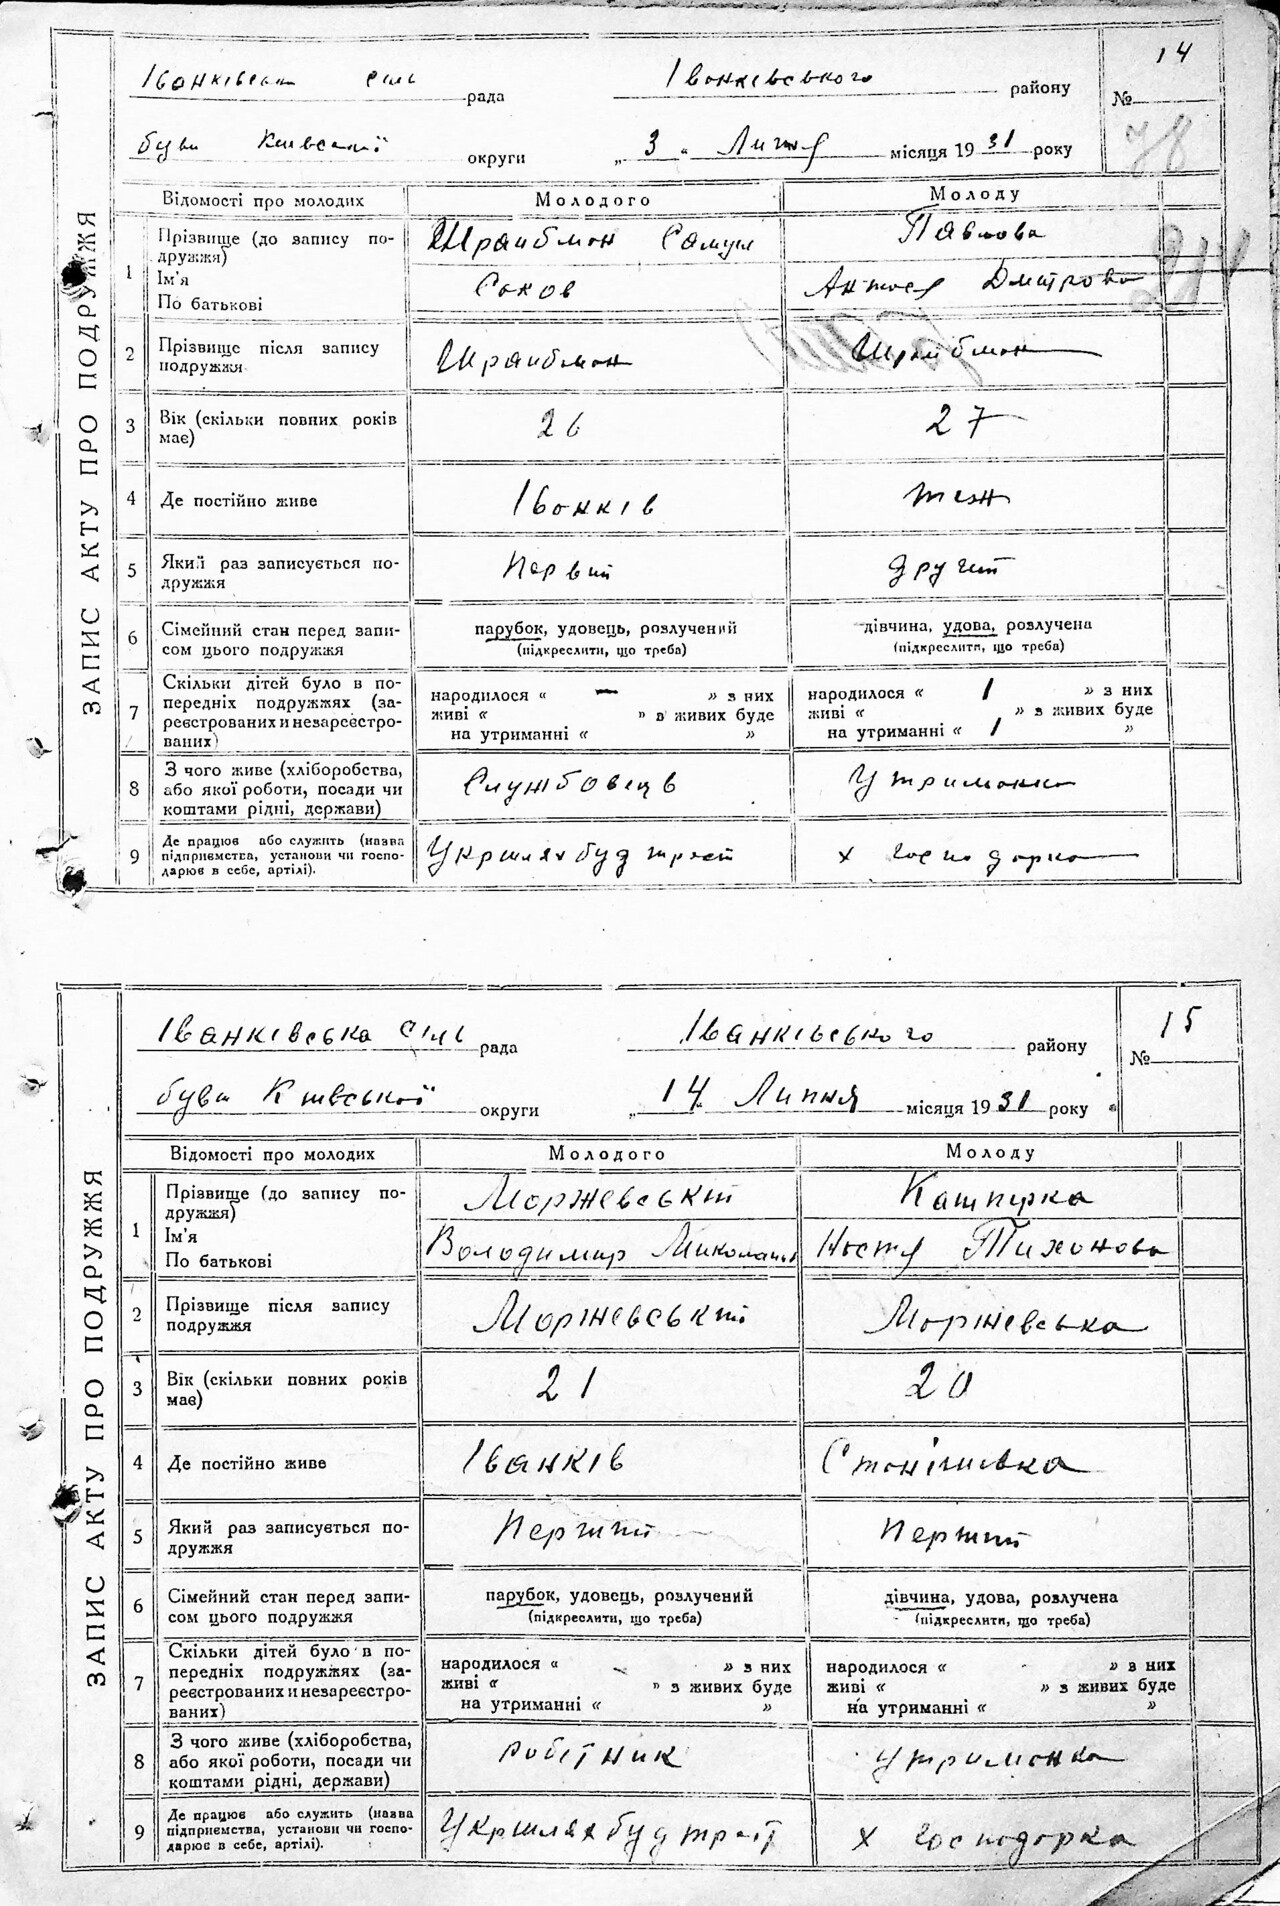 ЗАПИС АКТУ ПРО ПОДРУЖЖЯ
14
Іванківська сіль рада Іванківського району №
був Київської округи „ 3 „ Липня місяця 1931 року
78
Відомості про молодих Молодого Молоду
1 Прізвище (до запису подружжя) Шрайбман Самуил Павлова
Ім'я
По батькові Соков Антося Дмитрова
2 Прізвище після запису подружжя Шрайбман Шрайбман
3 Вік (скільки повних років має) 26 27
4 Де постійно живе Іванків теж
5 Який раз записується подружжя Первий другий
6 Сімейний стан перед записом цього подружжя парубок, удовець, розлучений (підкреслити, що треба) дівчина, удова, розлучена (підкреслити, що треба)
7 Скільки дітей було в попередніх подружжях (зареєстрованих и незареєстрованих) народилося « — » з них живі « » в живих буде на утриманні « » народилося « 1 » з них живі « » з живих буде на утриманні « 1 »
8 З чого живе (хліборобства, або якої роботи, посади чи коштами рідні, держави) Службовець Утриманка
9 Де працює або служить (назва підприємства, установи чи господарює в себе, артілі). Укршляхбудтрест х господарка
ЗАПИС АКТУ ПРО ПОДРУЖЖЯ
15
Іванківська сіль рада Іванківського району №
був Київської округи „ 14 „ Липня місяця 1931 року
Відомості про молодих Молодого Молоду
1 Прізвище (до запису подружжя) Моржевський Кашпірка
Ім'я
По батькові Володимир Миколаів Настя Тихонова
2 Прізвище після запису подружжя Моржевський Моржевська
3 Вік (скільки повних років має) 21 20
4 Де постійно живе Іванків
5 Який раз записується подружжя Перший Перший
6 Сімейний стан перед записом цього подружжя парубок, удовець, розлучений (підкреслити, що треба) дівчина, удова, розлучена (підкреслити, що треба)
7 Скільки дітей було в попередніх подружжях (зареєстрованих и незареєстрованих) народилося « - » з них живі « » з живих буде на утриманні « » народилося « » в них живі « » з живих буде на утриманні « »
8 З чого живе (хліборобства, або якої роботи, посади чи коштами рідні, держави) робітник утриманка
9 Де працює або служить (назва підприємства, установи чи господарює в себе, артілі). Укршляхбудтрест х господарка